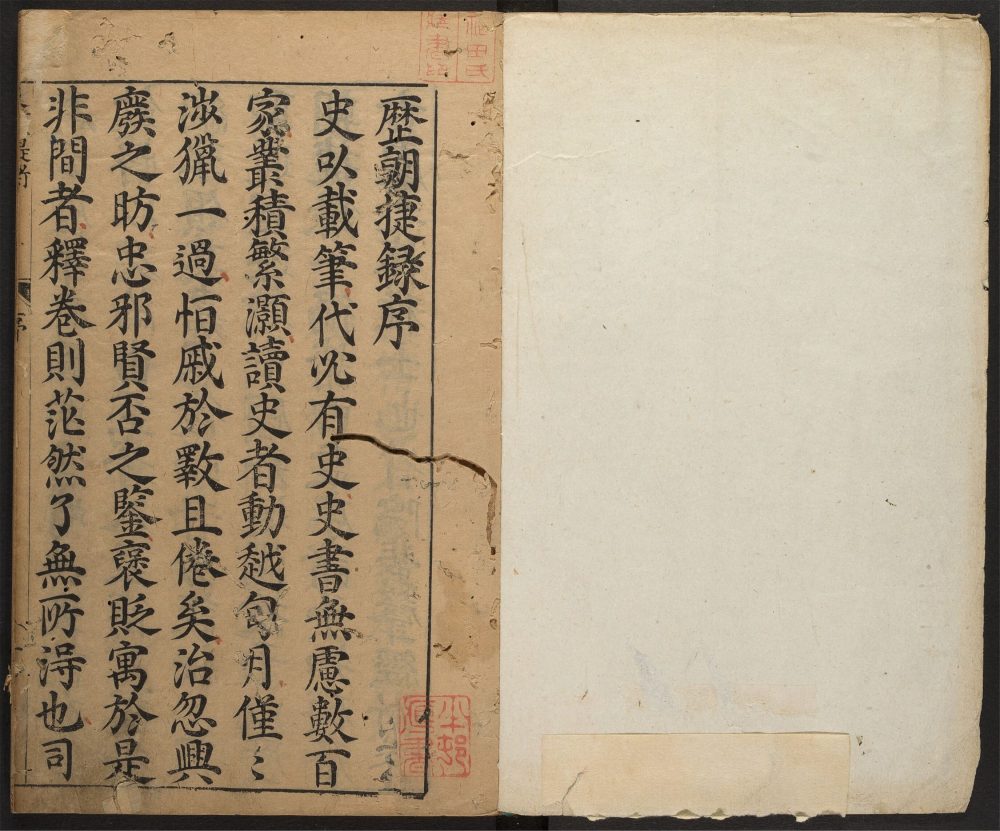 歷朝捷録序
史以載筆代必有史史書無慮數百
家叢積繁灝讀史者動越旬月僅〻
涉獵一過怕戚於斁且倦矣治忽興
廢之昉忠邪賢否之鑒褒貶寓於是
非間者釋卷則茫然了無所淂也司
序